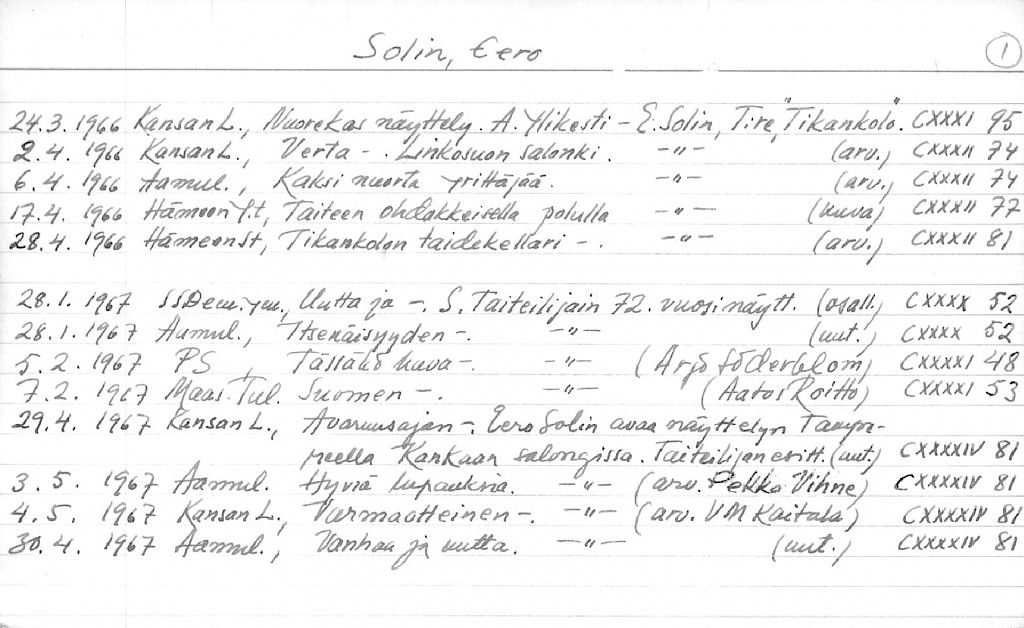 Solin, Eero 1
24.3.1966 Kansan L., Nuorekas näyttely. A. Ylikesti - E. Solin, Tire, "Tikankolo". CXXXI 95
2.4.1966 Kansan L., Verta - . Linkosuon salonki. -"- (arv.) CXXXII 74
6.4.1966 Aamul., Kaksi nuorta yrittäjää. -"- (arv.) CXXXII 74
17.4.1966 Hämeen Yt, Taiteen ohdakkeisella polulla -"- (kuva) CXXXII 77
28.4.1966 HämeenSt, Tikankolon taidekellari - . -"- (arv.) CXXXII 81
28.1.1967 SSDem., Uutta ja -. S. Taiteilijain 72. vuosinäytt. (osall.) CXXXX 52
28.1.1967 Aamul., Itsenäisyyden -. -"- (uut.) CXXXX 52
5.2.1967 PS, Tässäkö kuva -. -"- (Arjo Söderblom) CXXXXI 48
7.2.1967 Maas.Tul. Suomen -. -"- (Aatos Roitto) CXXXXI 53
29.4.1967 Kansan L., Avaruusajan -. Eero Solin avaa näyttelyn Tampe-
reella Kankaan salongissa. Taiteilijan esitt. (uut.) CXXXXIV 81
3.5.1967 Aamul. Hyviä lupauksia. -"- (arv. Pekka Vihne) CXXXXIV 81
4.5.1967 Kansan L., Varmaotteinen -. -"- (arv. VM Kaitala) CXXXXIV 81
30.4.1967 Aamul., Vanhaa ja uutta. -"- (uut.) CXXXXIV 81